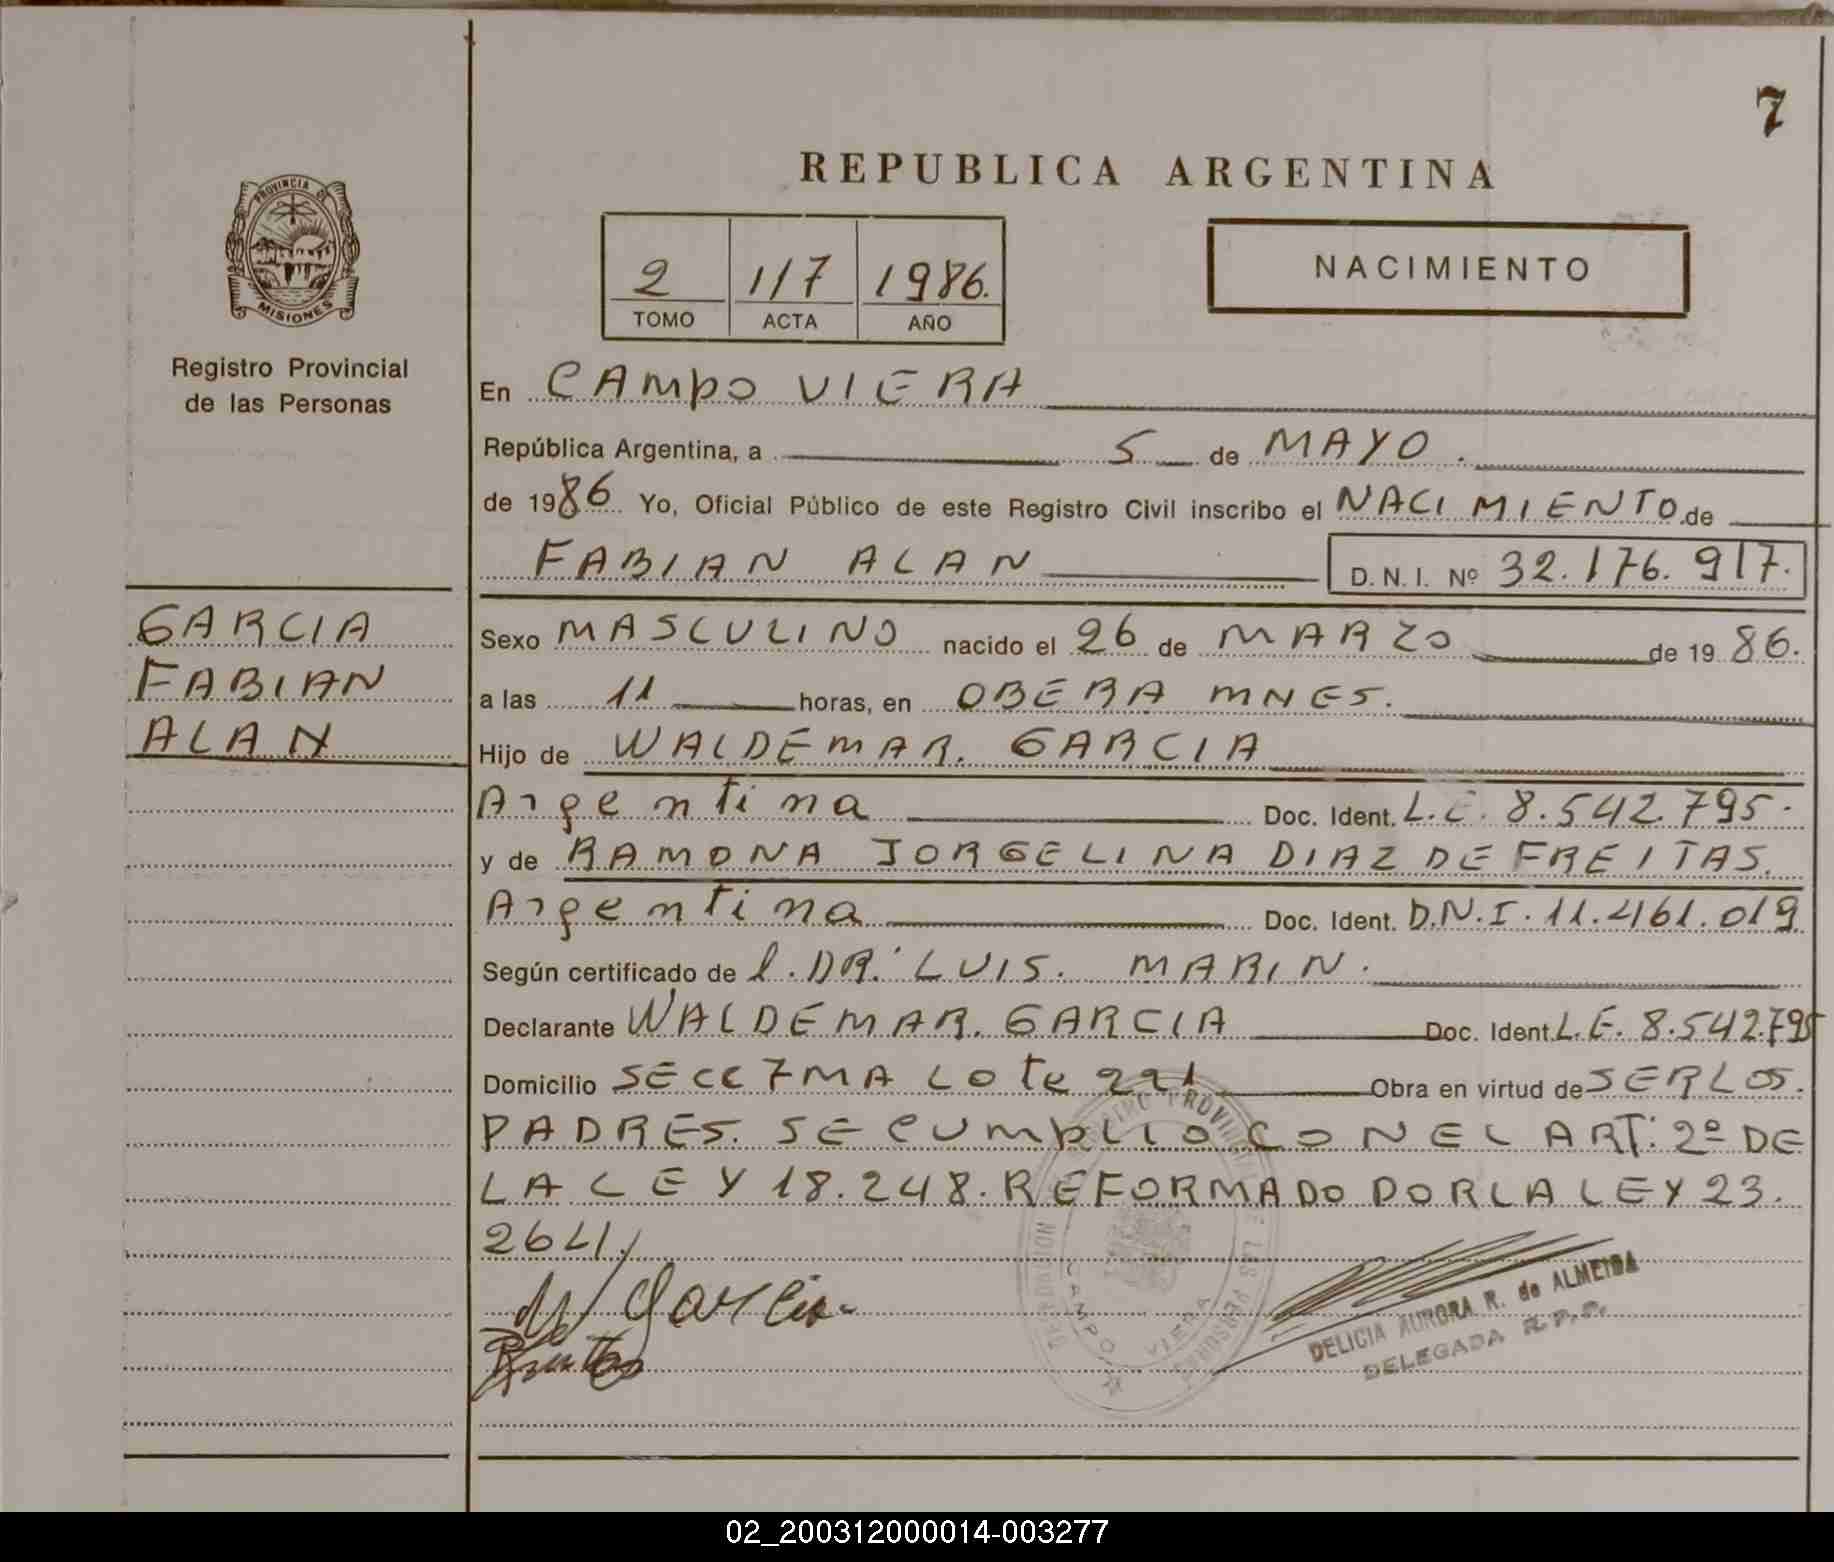 7
REPUBLICA ARGENTINA
PROVINCIA DE
MISIONES
Registro Provincial
de las Personas
2 117 1986.
TOMO ACTA AÑO
NACIMIENTO
En CAMPO VIERA
República Argentina, a 5 de MAYO.
de 1986 Yo, Oficial Público de este Registro Civil inscribo el NACIMIENTO de
FABIAN ALAN D. N. I. Nº 32.176.917.
GARCIA
FABIAN
ALAN
Sexo MASCULINO nacido el 26 de MARZO de 1986.
a las 11 horas, en OBERA MNES.
Hijo de WALDEMAR. GARCIA
Argentina Doc. Ident. L.E. 8.542.795.
y de RAMONA JORGELINA DIAZ DE FREITAS.
Argentina Doc. Ident. D.N.I. 11.461.019
Según certificado de l. DR. LUIS. MARIN.
Declarante WALDEMAR. GARCIA Doc. Ident. L.E. 8.542.795
Domicilio SECC 7MA LOTE 221 Obra en virtud de SERLOS.
PADRES. SE CUMPLIO CON EL ART: 2º DE
LA LEY 18.248. REFORMADO POR LA LEY 23.
264/
W Garcia
DELICIA AURORA R. de ALMEIDA
DELEGADA R.P.P.
REGISTRO PROVINCIAL DE LAS PERSONAS
CAMPO VIERA
02_200312000014-003277